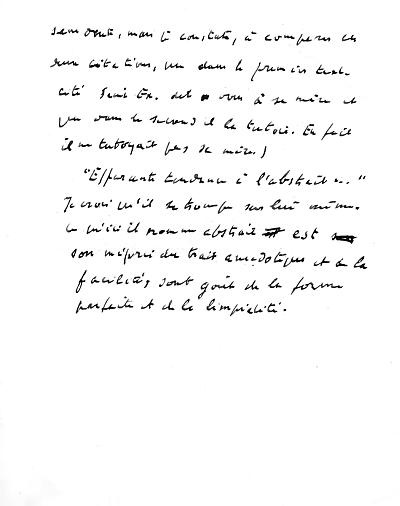 sans doute, mais je constate, à comparer les
deux citations, que dans le premier texte
cité Saint Ex. dit vous à sa mère et
que dans le second il la tutoie. En fait
il ne tutoyait pas sa mère.)
"Effarante tendance à l'abstrait..."
Je crois qu'il se trompe sur lui même.
Ce qu'ici il nomme abstrait est
son mépris du trait anecdotique et de la
facilité, son goût de la forme
parfaite et de la limpidité.